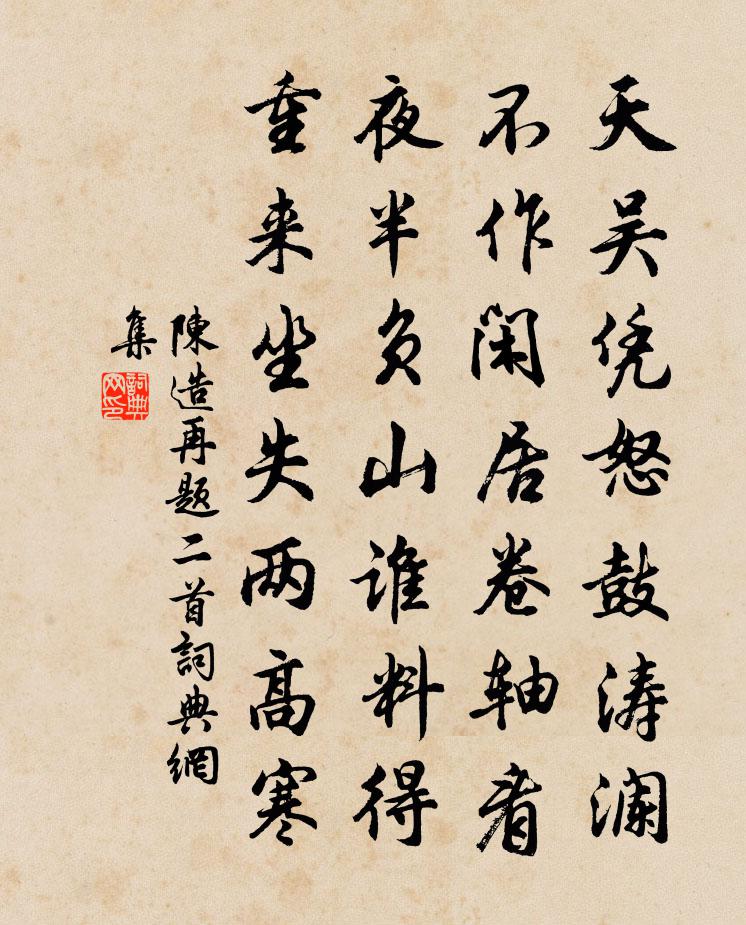 天吴凭怒鼓涛澜
不作闲居卷轴看
夜半负山谁料得
重来坐失两高寒
陳造再题二首詞典網
集
詞典
网印